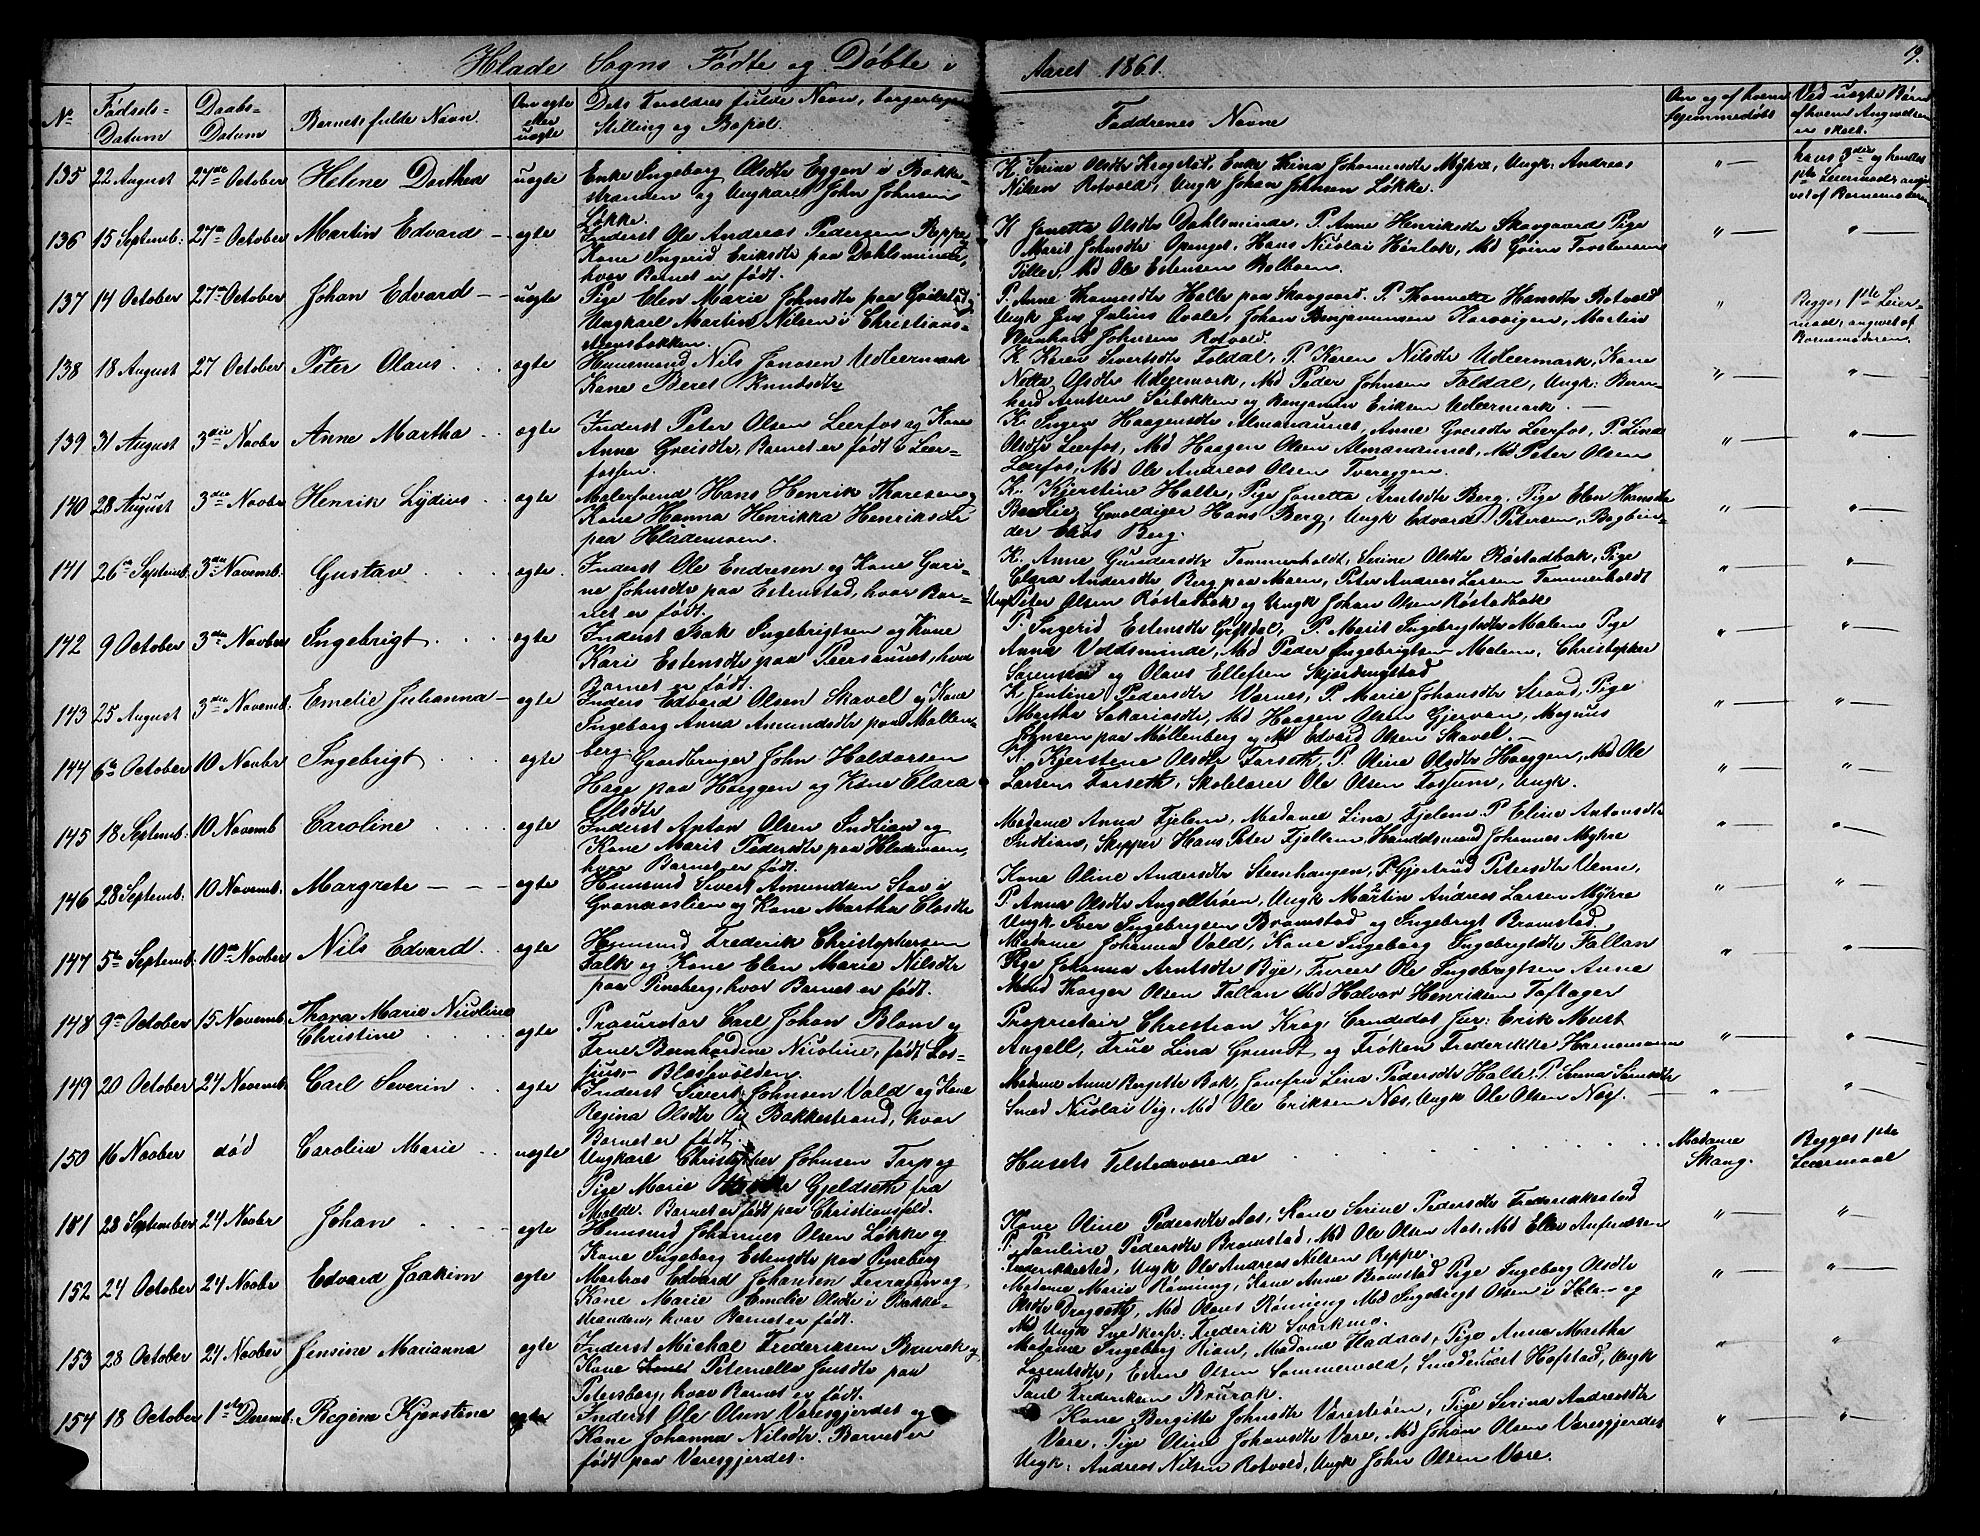 Hlade Sogns Fødte og Døbte i Aaret 1861.
19.
No Fødsels-Datum Daabs-Datum Barnets fulde Navn. Om ægte eller uægte Dets Forældres fulde Navn, borgerlige Stilling og Bopæl. Faddrenes Navne Om og af hvem hjemmedøbt Ved uægte Børn af hvem Angivelsen er skeet.
135 22 August 27de October Helene Dorthea uægte Enke Ingeborg Olsdtr Eggen i Bakke-
stranden og Ungkarl John Johnsen
Løkke.
K. Serine Olsdtr Krogstad, Enke Stina Johannesdtr Myhre, Ungk. Andreas
Nilsen Rotvold, Ungk Johan Johnsen Løkke.
" — hans 3die og hendes
1ste Leiermaal, angi-
vet af Barnemoderen
136 15 Septemb. 27de October Martin Edvard — ægte Inderst Ole Andreas Pedersen Reppe
Kone Ingerid Eriksdtr paa Dahlsminde,
hvor Barnet er født.
K Jonetta Olsdtr Dahlsminde, P. Anne Henriksdtr Skovgaard Pige
Marit Johnsdtr Openget, Hans Nicolai Hørlok, Md Grim Torstensen
Tiller, Md Ole Estensen Balhoen.
" — " —
137 14 October 27de October Johan Edvard — — uægte Pige Elen Marie Johnsdtr paa Grilstad,
Ungkarl Martin Nilsen i Christians-
stensbakken.
P. Anne Thomesdtr Halle paa Skovgaard. P. Thonnetta Hansdtr Rotvold
Ungk Jens Julius Ovale, Johan Benjaminsen Karvigen, Martin
Bernhard Johnsen Rotvold.
" Begges 1ste Leier-
maal, angivet af
Barnemoderen.
138 18 August 27 October Peter Olaus . . . ægte Huusmand Nils Jonosen Udleermark
Kone Beret Knudsdtr
K. Karen Sivertsdtr Foldal, P. Karen Nilsdtr Udleermark, Kone
Netta Olsdtr Udleermark, Md Peder Johnsen Foldal, Ungk: Bern-
hard Arntsen Sorbakken og Benjamin Eriksen Udleermark. —
" — " —
139 31 August 3die Novbr Anne Martha . . ægte Inderst Peter Olsen Leerfos og Kone
Anne Greisdtr, Barnet er født i Leer-
fossen.
K. Ingen Haagensdtr Almanaunet, Anne Greisdtr Leerfos, P. Lina
Olsdtr Leerfos, Md Haagen Olsen Almanaunet, Md Peter Olsen
Leerfos, Md Ole Andreas Olsen Tvereggen.
" — " —
140 28 August 3die Novbr Henrik Lydius . . ægte Malersvend Hans Henrik Tharesen og
Kone Hanna Henrikka Henriksdtr
paa Hlademoen.
K. Kjerstine Halle, Pige Jonetta Arntsdtr Berg, Pige Elen Hansdtr
Gevaldiger Hans Berg, Ungk Edvard Petersen, Bogbin-
der Elias Berg.
" — " —
141 26de Septemb. 3die Novemb. Gustav . . . . ægte. Inderst Ole Endresen og Kone Guri-
ne Johnsdtr paa Estenstad, hvor Bar-
net er født.
K. Anne Gundersdtr Tommerholdt, Serine Olsdtr Røstadbak, Pige
Clara Andersdtr Berg paa Moen, Peter Andreas Larsen Tommerholdt
Ungk Peter Olsen Røstadbak og Ungk Johan Olsen Røstadbak
" — " —
142 9 October 3die Novbr Ingebrigt . . . . ægte Inderst Isak Ingebrigtsen og Kone
Kari Estensdtr paa Peersaunet, hvor
Barnet er født.
P. Ingerid Estensdtr Giftdal, P. Marit Ingebrigtsdtr Malem Pige
Anna Voddsminde, Md Peder Ingebrigtsen Malem, Christopher
Sørensen og Olaus Ellefsen Skjerdingstad
" — " —
143 25 August 3die Novemb. Emelie Julianna — ægte Inders Edvard Olsen Skavel og Kone
Ingeborg Anna Amundsdtr paa Møllen-
berg.
K Jentine Pedersdtr Værnes, P. Marie Johansdtr Strand, Pige
Martha Sakariasdtr, Md Haagen Olsen Gjervan, Magnus
Johnsen paa Møllenberg og Md Edvard Olsen Skavel. —
" — " —
144 6te October 10 Novbr Ingebrigt . . . . ægte Gaardbruger John Haldorsen
Hage paa Hoeggen og Kone Clara
Olsdtr
K. Kjerstene Olsdtr Forseth, P. Oline Olsdtr Hoeggen, Md Ole
Larsen Forseth, Skolelærer Ole Olsen Fossum, Ungk.
" — " —
145 18 Septemb. 10 Novemb Caroline . . . . ægte Inderst Anton Olsen Indtian og
Kone Marit Pedersdtr paa Hlademoen,
hvor Barnet er født.
Madame Anna Fjelem, Madame Lina Fjelem P Eline Antonsdtr
Indtian, Skipper Hans Peter Fjellem Handdsmand Johannes Myhre
" — " —
146 28 Septemb. 10 Novemb. Margrete — — — ægte Huusmnd Sivert Amundsen Stav i
Granaaslien og Kone Martha Olsdtr
Kone Oline Andersdtr Steenhaugen, P. Gjertrud Petersdtr Venn,
P. Anna Olsdtr Angelltrøen, Ungk Martin Andreas Larsen Myhre
Ungk Iver Ingebrigtsen Bromstad og Ingebrigt Bromstad.
" — " —
147 5te Septemb. 10de Novbr Nils Edvard . . ægte Huusmnd Frederik Christophersen
Falk og Kone Elen Marie Nilsdtr
paa Pineberg, hvor Barnet er født.
Madame Johanna Vold, Kone Ingeborg Ingebrigtsdtr Fallan
Pige Johanna Arntsdtr Bye, Furer Ole Ingebrigtsen Anne
Mand Thorger Olsen Fallan Md Halvor Henriksen Toftager
" — " —
148 9de October 15 Novemb. Thora Marie Nicoline
Christine . . . . ægte Procurator Carl Johan Blom og
Frue Bernhardine Nicoline, født Los-
sius — Blåsevolden.
Proprietair Christian Krog, Candidat Jur: Erik Must
Angell, Frue Lina Grundt og Frøken Frederikke Hornemann
" — " —
149 20 October 24 Novemb. Carl Severin . . ægte Inderst Sivert Johnsen Vold og Kone
Regina Olsdtr Paa Bakkestrand, hvor
Barnet er født.
Madame Anne Bergitte Bak, Jomfru Lina Pedersdtr Halte, P. Serena Simesdtr
Smed Nicolai Vig, Md Ole Eriksen Næs, Ungk Ole Olsen Næs.
" — " —
150 16 Novber død Caroline Marie . . uægte Ungkarl Christopher Johnsen Torp og
Pige Marie Gjeldseth fra
Molde. Barnet er født paa Christiansfeld.
Husets Tilstedeværende . . . . . . . . .
Madame
Skang.
Begges 1ste
Leiermaal
151 28 September 24 Novbr Johan . . . — ægte Huusmnd Johannes Olsen Løkke og
Kone Ingeborg Estensdtr paa Pineberg
Kone Oline Pedersdtr Aas, Kone Serine Pedersdtr Frederikkestad
P. Pauline Pedersdtr Bromstad, Md Ole Olsen Aas, Md Ellev Anfinnsen
Frederikkestad, Ungk Ole Andreas Nilsen Reppe.
" — " —
152 24 October 24 Novbr Edvard Joakim ægte Matros Edvard Johansen Forragen og
Kone Marie Emelie Olsdtr i Bakke-
stranden, hvor Barnet er født.
Madame Marie Rønning, Kone Anne Bromstad Pige Ingeborg Olsdtr
Olsdtr Dragseth, Md Olaus Rønning Md Ingebrigt Olsen i Ila og
Md Ungk Snedkersv: Frederik Svorkmo.
" — " —
153 28 October 24 Novber Jensine Marianna ægte Inderst Michal Frederiksen Brurok og
Kone Peternella Jensdtr paa
Petersborg, hvor Barnet er født.
Madame Ingeborg Kian, Madame Haddas, Pige Anna Martha
Larentsdtr, Esten Olsen Sommervold, Smedmest Hofstad, Ungk
Paul Frederiksen Brurok.
" — " —
154 18 October 1ste Decemb. Regine Kjerstene ægte Inderst Ole Olsen Væresgjerdet og
Kone Johanna Nilsdtr. Barnet er
født paa Væresgjerdet.
Kone Bergitte Johnsdtr Værestrøen, Pige Serina Andreasdtr
Være, Pige Oline Johansdtr Være, Md Johan Olsen Væresgjerdet
Ungk: Andreas Nilsen Rotvold, Ungk John Olsen Være.
" — " —